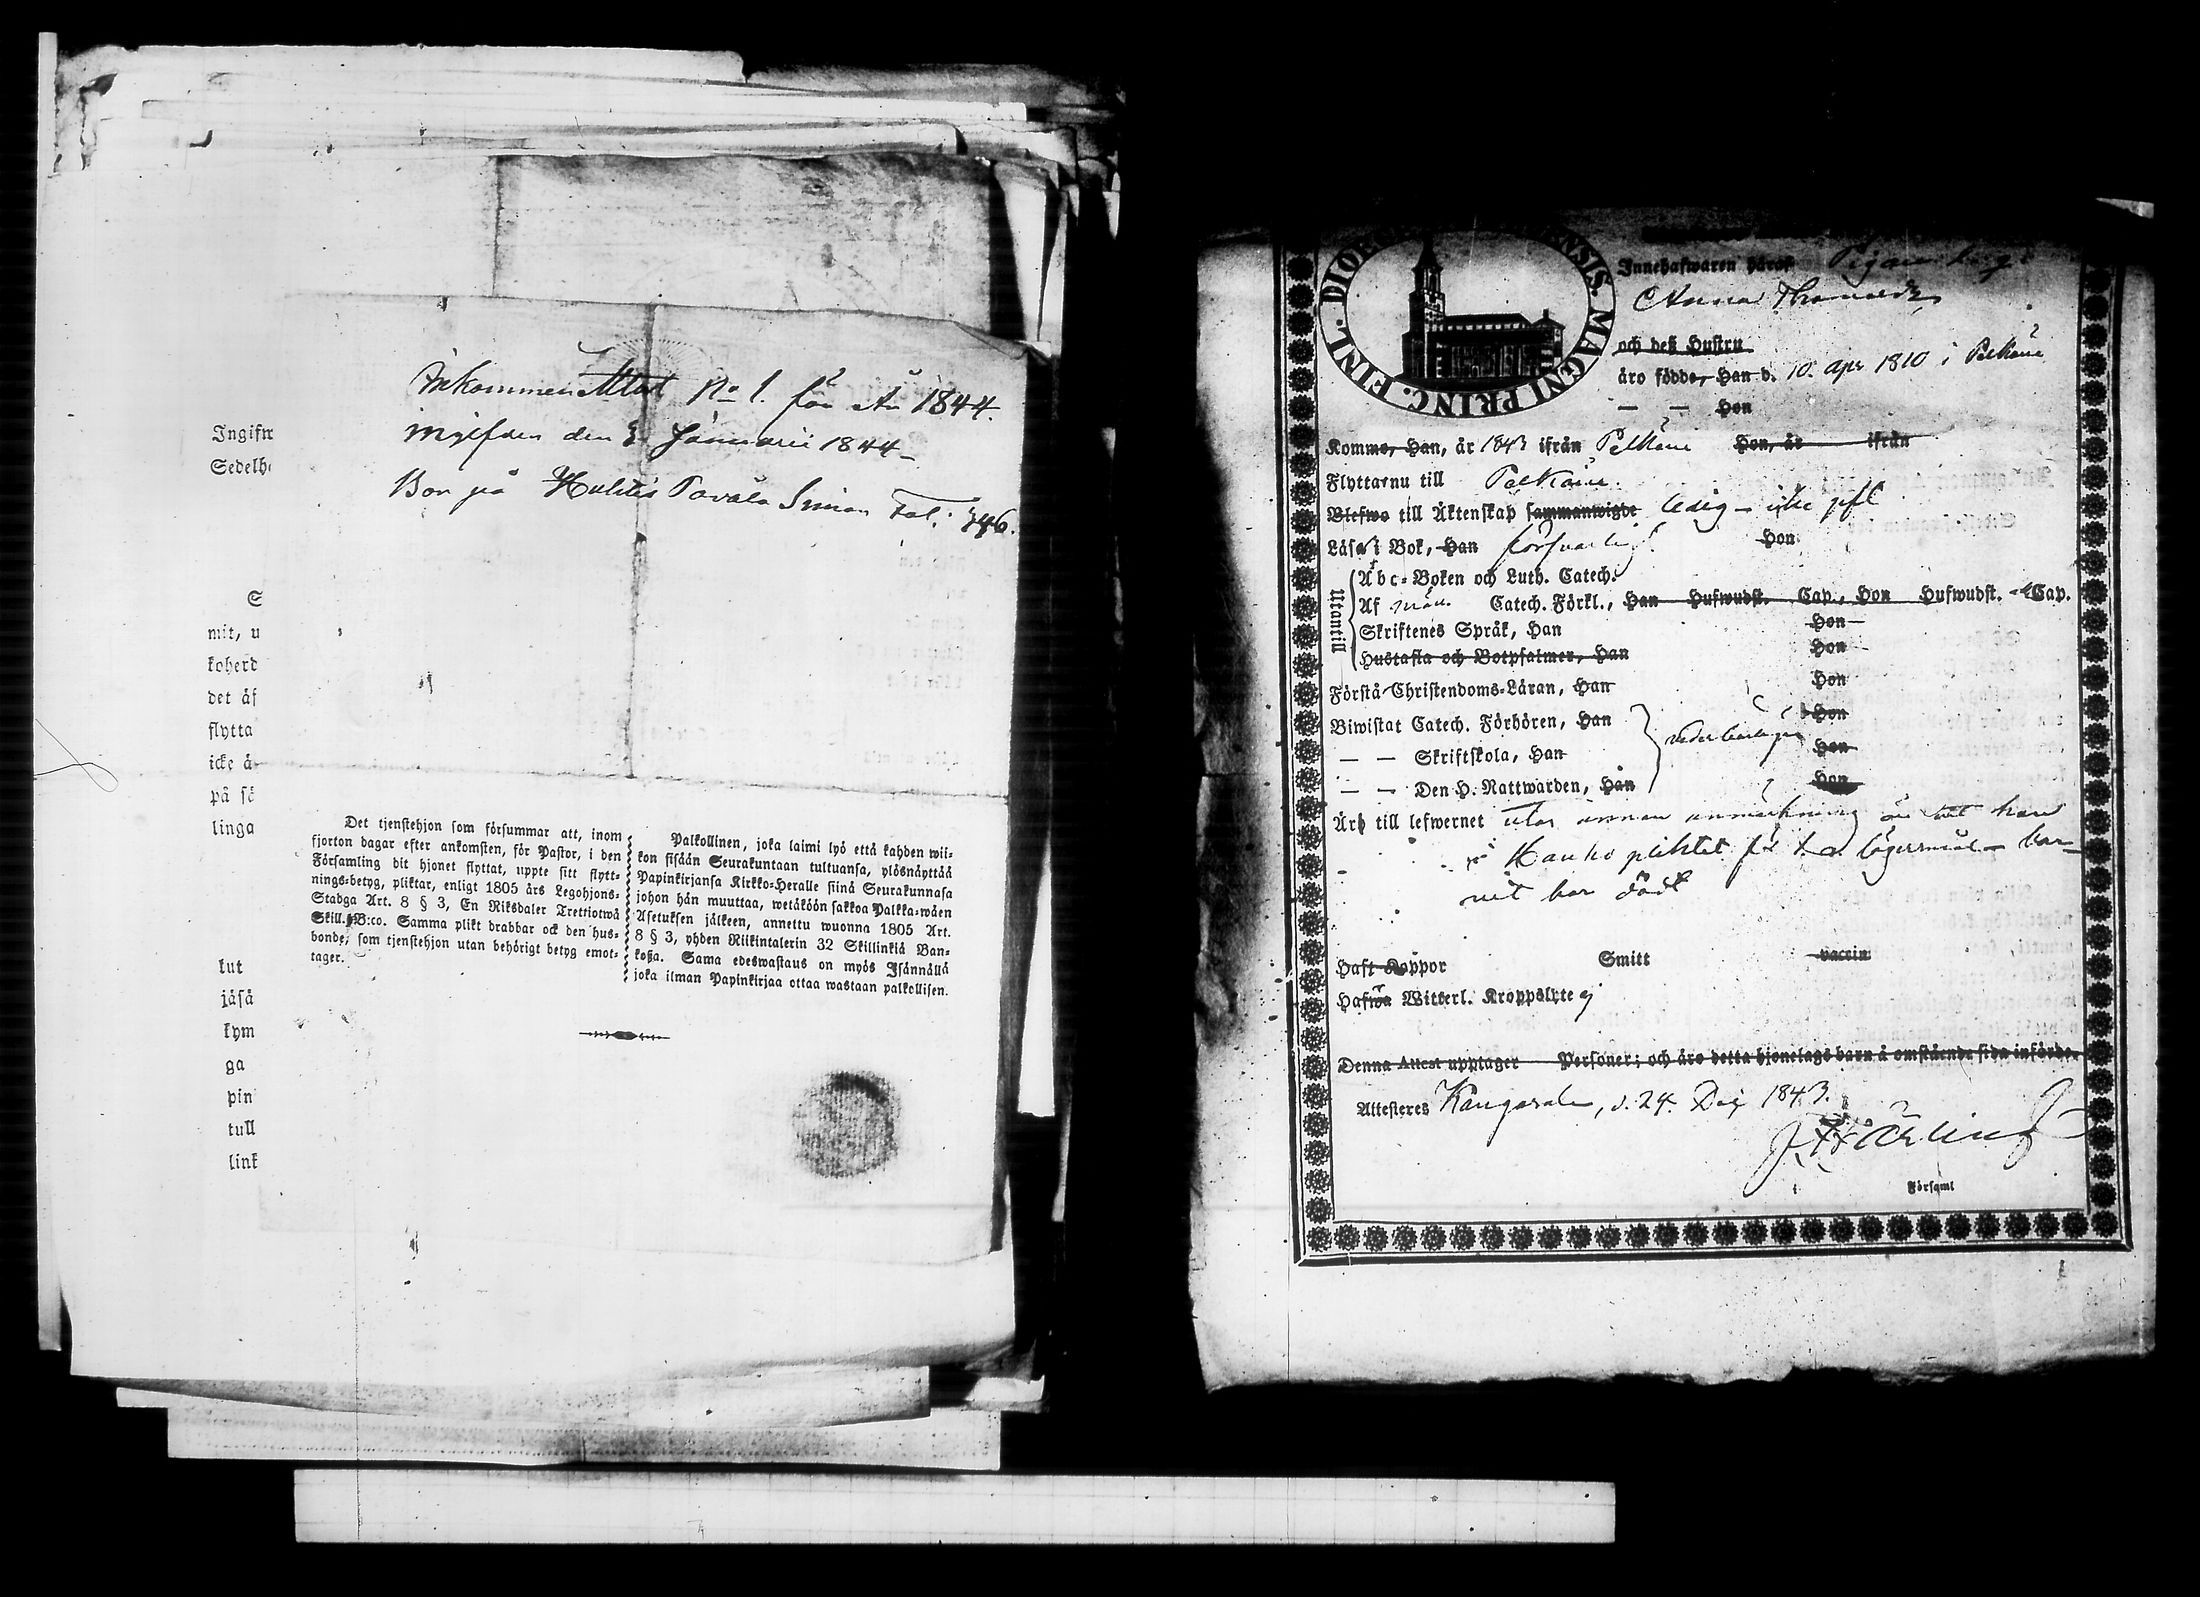 Inkommen Attest No 1. för År 1844.
ingifven den 3 Januarii 1844 –
Bor på Huhtis Pavala Simon Fol. 346.
Ingifw
Sedelh
S
mit, u
koherd
det äf
flytta
icke ä
på sä
linga
lut
jäsä
kym
ga
pin
tull
link
Det tjenstehjon som försummar att, inom
fjorton dagar efter ankomsten, för Pastor, i den
Församling dit hjonet flyttat, uppte sitt flytt-
nings-betyg, pliktar, enligt 1805 års Legohjons-
Stadga Art. 8 § 3, En Riksdaler Trettiotwå
Skill. B:co. Samma plikt drabbar ock den hus-
bonde, som tjenstehjon utan behörigt betyg emot-
tager.
Palkollinen, joka laimi lyö että kahden wii-
kon sisään Seurakuntaan tultuansa, ylösnäyttää
Papinkirjansa Kirkko-Heralle siinä Seurakunnasa
johon hän muuttaa, wetäköön sakkoa Palkka-wäen
Asetuksen jälkeen, annettu wuonna 1805 Art.
8 § 3, yhden Riikintalerin 32 Skillinkiä Ban-
koßa. Sama edeswastaus on myös Isännällä
joka ilman Papinkirjaa ottaa wastaan palkollisen.
FINL. DIOE ENSIS. MAGNI PRINC.
Innehafwaren häraf Pigan
Anna Thomasdr
och deß Hustru
äro födde, Han d. 10. apr 1810 i Pelkäne
— — Hon
Kommo, Han, år 1843 ifrån Pelkäne Hon, år ifrån
Flyttar nu till Pelkäne.
Blefwo till Äktenskap sammanwigde ledig – icke
Läsa i Bok, Han försvarlig Hon
Utantill
Abc-Boken och Luth. Catech.
Af Catech. Förkl., Han Hufwudst. Cap., Hon Hufwudst. Cap.
Skriftenes Språk, Han Hon
Hustafla och Botpsalmer, Han Hon
Förstå Christendoms-Läran, Han Hon
Biwistat Catech. Förhören, Han Hon
— — Skriftskola, Han Hon
— — Den H. Nattwarden, Han Hon
vederbörligen
Äro till lefwernet utan annan anmärkning än att hon
i Kauko pliktat för 1.a lägersmål – bar-
net har dödt
Haft Koppor Smitt vaccin
Hafwa Witterl. Kroppslyte ej
Denna Attest upptager Personer; och äro detta hjonelags barn å omstående sida införde.
Attesteres Kangasala, d. 24. Dec 1843.
Församl